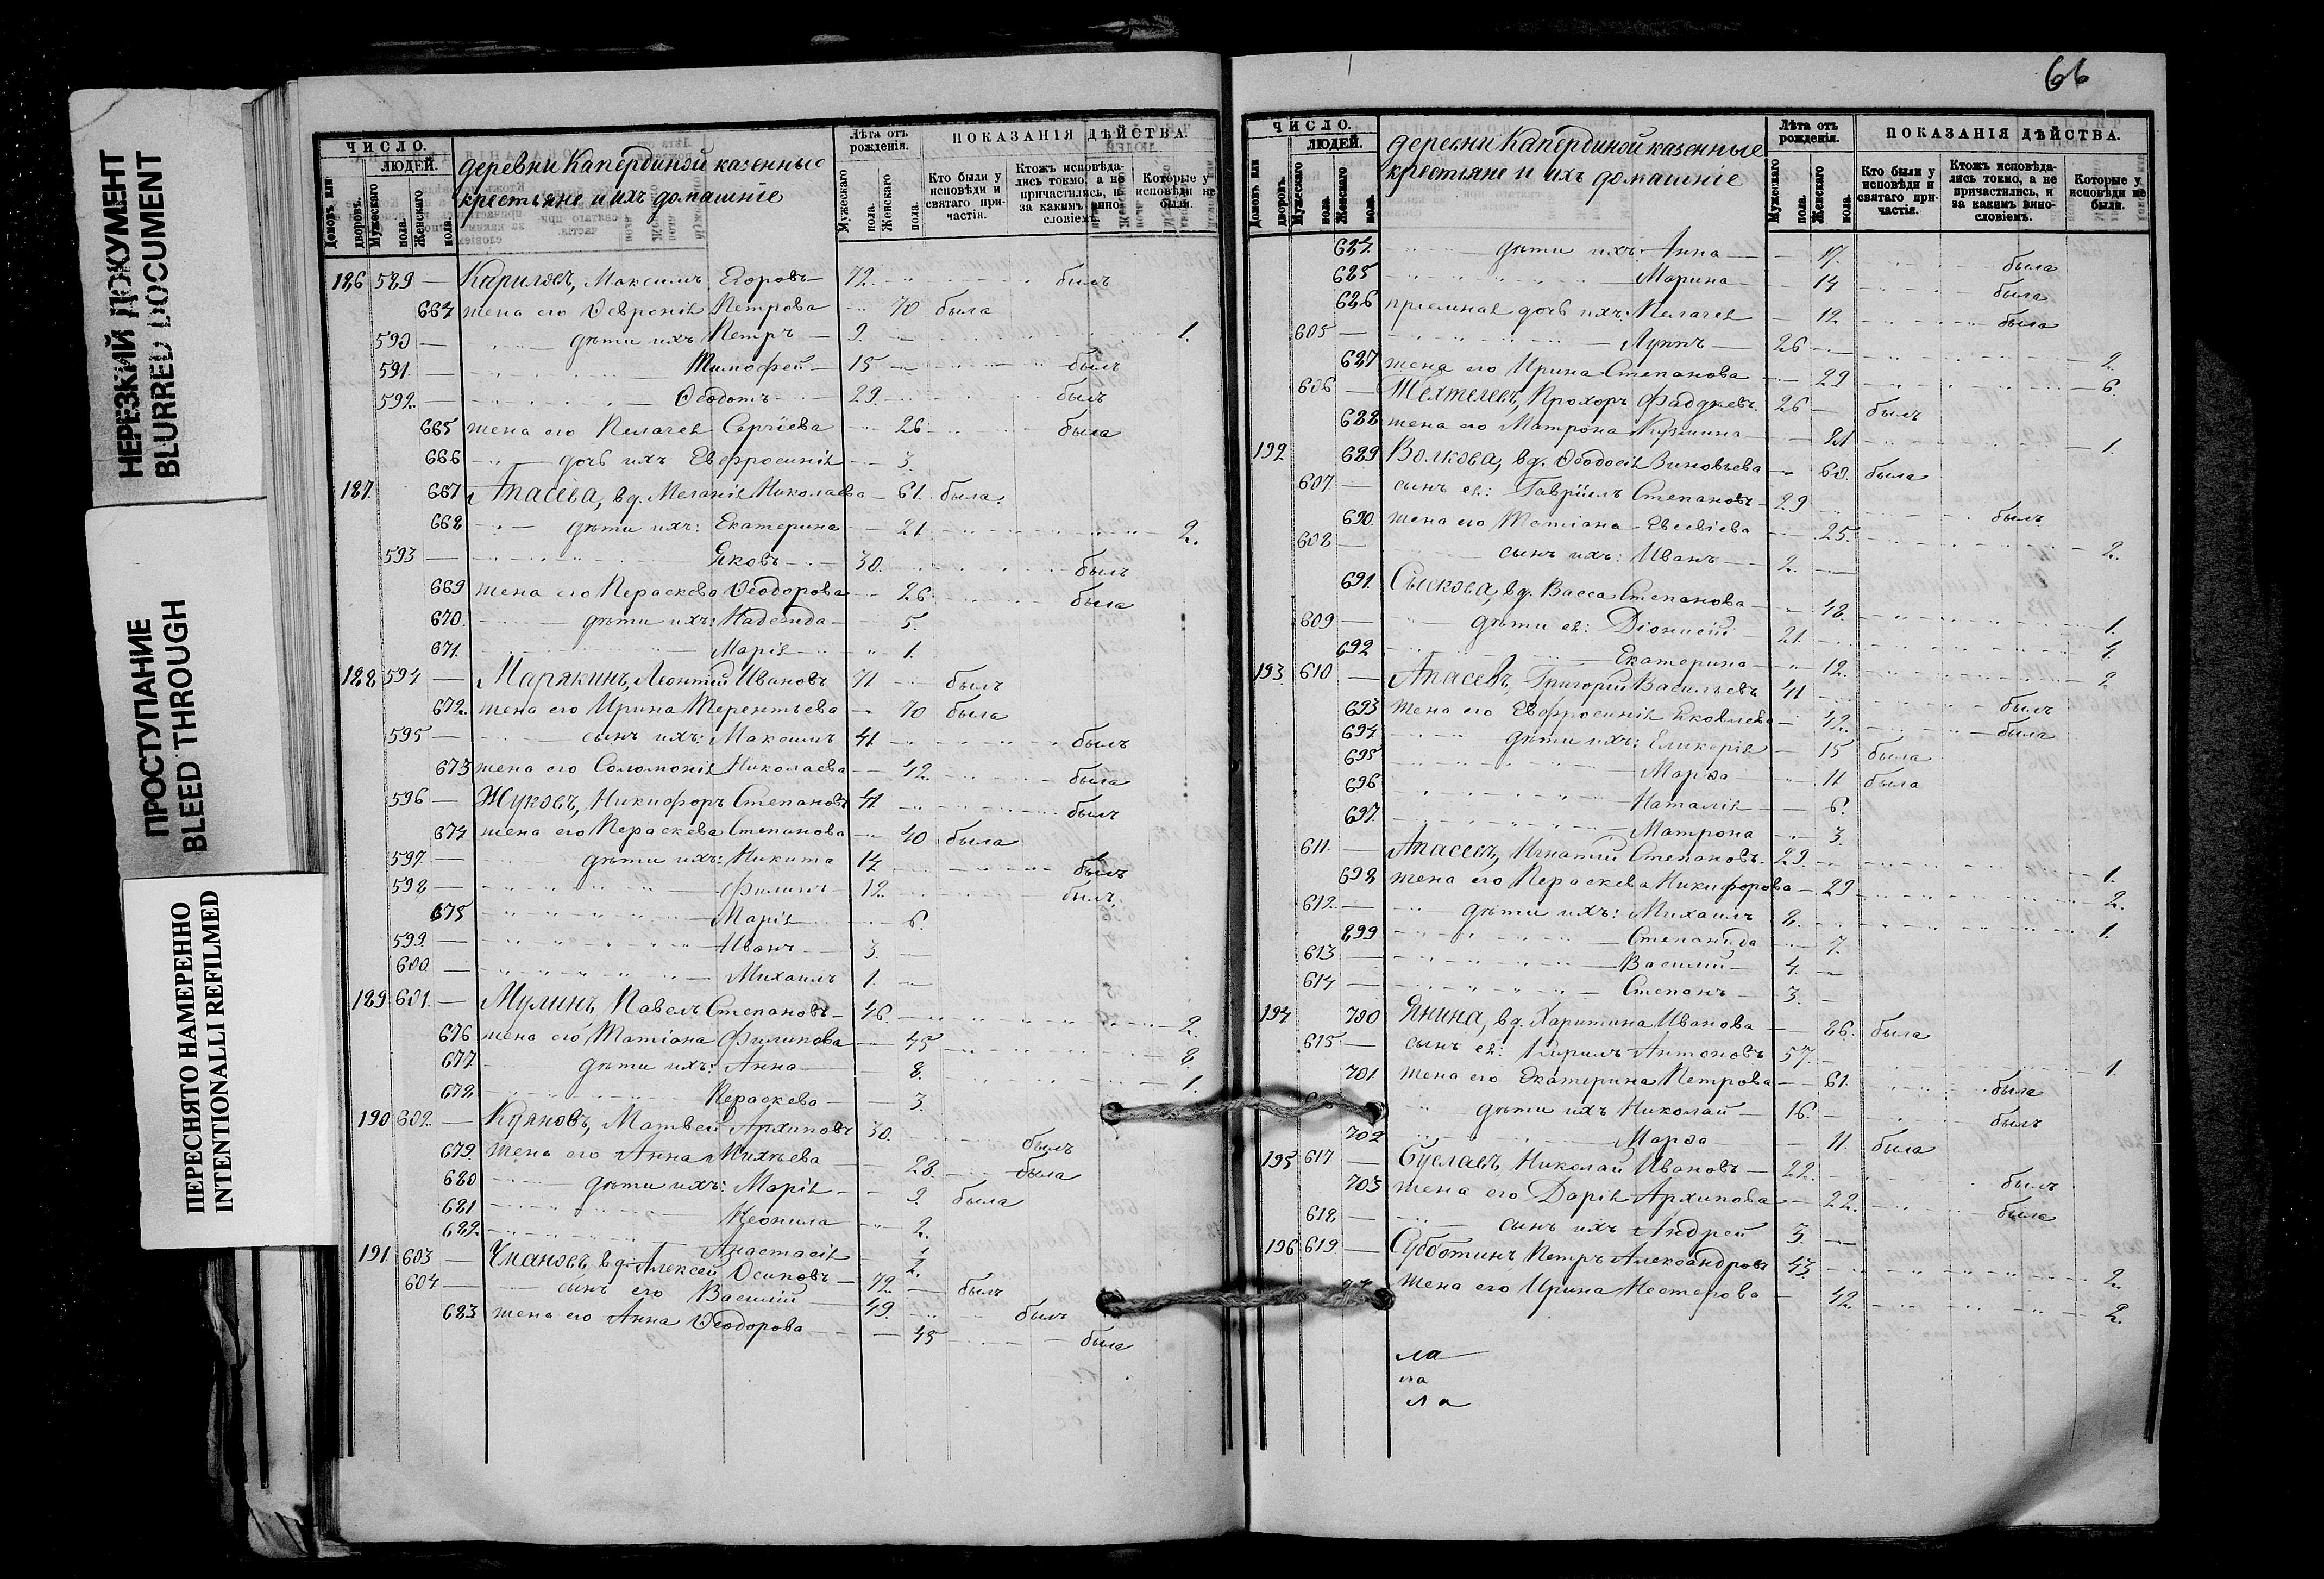 НЕРЕЗКИЙ ДОКУМЕНТ
BLURRED DOCUMENT
ПРОСТУПАНИЕ
BLEED THROUGH
ПЕРЕСНЯТО НАМЕРЕННО
INTENTIONALLI REFILMED
ЧИСЛО.
ЛЮДЕЙ.
Домовъ или дворовъ.
Мужескаго пола.
Женскаго пола.
деревни Капердиной казенные
крестьяне и ихъ домашніе
Лѣта отъ рожденія.
Мужескаго пола.
Женскаго пола.
ПОКАЗАНІЯ ДѢЙСТВА.
Кто были у исповѣди и святаго причастія.
Ктожъ исповѣдались токмо, а не причастились, и за какимъ винословіемъ.
Которые у исповѣди не были.
126 589 — Максимъ Егоровъ 72 былъ
664 жена его Ѳевронія Петрова 70 была
590 — дѣти ихъ Петръ 9. 1.
591 — Тимофей 15 былъ
592 — Ѳеодотъ 29. былъ
665 жена его Пелагея Сергіева 26 была
666 дочь ихъ Евфросинія 3.
127. 667 Апасева, вд. Меланія Николаева 61. была.
668 дѣти ихъ: Екатерина 21. 2.
593 — Яковъ 30. былъ
669 жена его Параскева Ѳеодорова 26 была
670. дѣти ихъ: Надежда 5.
671. Марія 1.
128 594 — Марякинъ, Леонтій Ивановъ 71 былъ
672. жена его Ирина Терентьева 70 была
595 — сынъ ихъ: Максимъ 41. былъ
673 жена его Соломонія Николаева 42. была
596 — Жуковъ, Никифоръ Степановъ 41. былъ
674 жена его Параскева Степанова 40 была
597. — дѣти ихъ: Никита 14 былъ
598 — Филипъ 12. былъ.
675 Марія 6.
599. — Иванъ 3.
600 — Михаилъ 1.
129 601. — Мулинъ, Павелъ Степановъ 46. 2.
676 жена его Татіана Филипова 45 2
677. дѣти ихъ: Анна 8. 1.
678 Параскева 3.
190 602. — Куяновъ, Матвей Архиповъ 30. былъ
679. жена его Анна Михѣева 28. была
680 дѣти ихъ: Марія 9. была
681 Неонила 2.
682 Анастасія
191. 603 — вд. Алексей Осиповъ 72. былъ
604 — сынъ его Василій 49. былъ
683 жена его Анна Ѳеодорова 45 была
66
ЧИСЛО.
ЛЮДЕЙ.
Домовъ или дворовъ.
Мужескаго пола.
Женскаго пола.
деревни Капердиной казенные
крестьяне и ихъ домашніе
Лѣта отъ рожденія.
Мужескаго пола.
Женскаго пола.
ПОКАЗАНІЯ ДѢЙСТВА.
Кто были у исповѣди и святаго причастія.
Ктожъ исповѣдались токмо, а не причастились, и за какимъ винословіемъ.
Которые у исповѣди не были.
684. дѣти ихъ Анна 17. была
685 Марина 14 была
686 пріемная дочь ихъ: Пелагея 12 была
605 — Луппъ 26 2.
687 жена его Ирина Степанова 29 6.
606 — Прохоръ Фаддѣевъ. 26 былъ
688 жена его Матрона Кузмина 21 1.
192. 689 Волкова, вд. Ѳеодосія Зиновьева 60. была
607 — сынъ ея: Гавріилъ Степановъ 29 былъ
690 жена его Татіана Евсевіева 25. 2.
608 — сынъ ихъ: Иванъ 2.
691. вд. Васса Степанова 48. 1.
609 — дѣти ея: Діонисій 21. 4.
692 Екатерина 12. 2
193. 610 — Апасевъ, Григорій Васильевъ 41 былъ
693 жена его Евфросинія Яковлева 42. была
694 дѣти ихъ: Гликерія 15 была
695 Марѳа 11 была
696 Наталія 6.
697. Матрона 3.
611. — Апасевъ, Игнатій Степановъ. 29. 1.
698 жена его Параскева Никифорова 29 2.
612. — дѣти ихъ: Михаилъ 8. 1.
699 Степанида 7.
613 — Василій 4.
614 — Степанъ 3.
194 700 Янина, вд. Харитина Иванова 86. была
615 — сынъ ея: Кирилъ Антоновъ 57. 1.
701 жена его Екатерина Петрова 61. была
дѣти ихъ Николай 16. былъ
702 Марѳа 11. была
195 617 — Буслаевъ, Николай Ивановъ 22. былъ
703 жена его Дарія Архипова 22. была
618 — сынъ ихъ Андрей 3.
196 619 — Субботинъ Петръ Александровъ 43. 2.
жена его Ирина Нестерова 42. 2.
ла
ла
ла